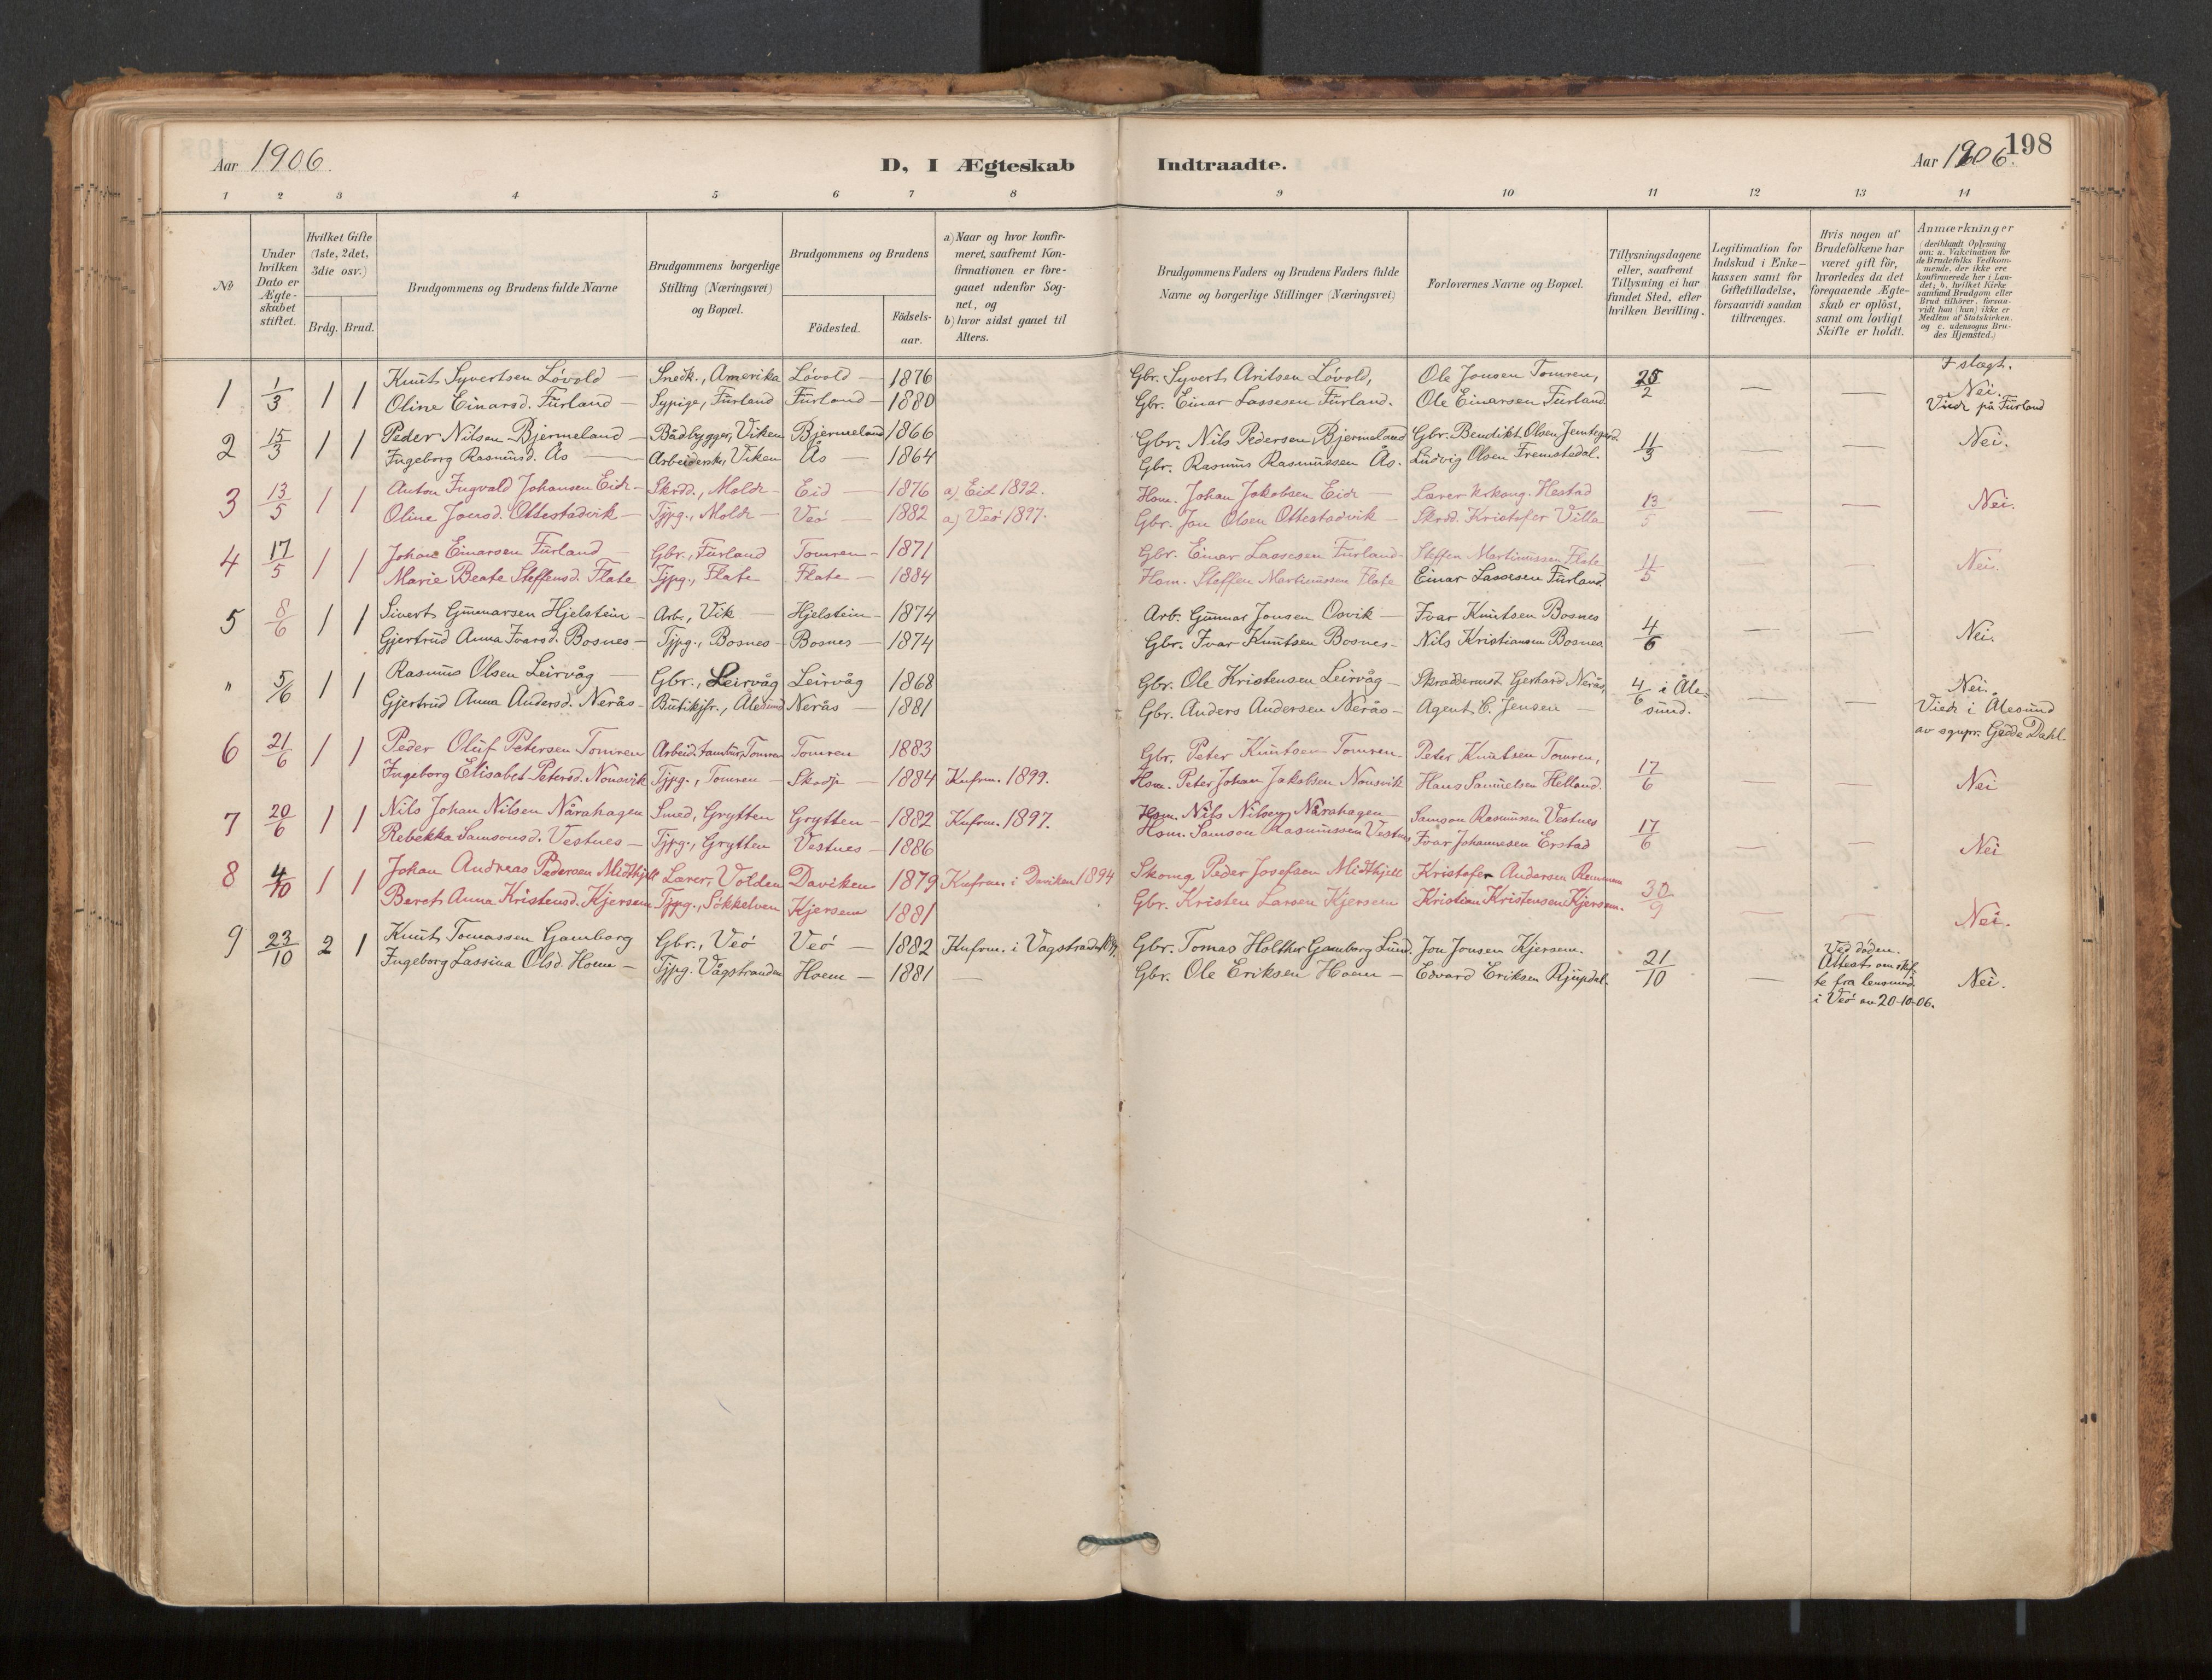 Aar 1906.
D, I Ægteskab
Indtraadte.
Aar 1906.
198
1 2 3 4 5 6 7 8 9 10 11 12 13 14
No
Under hvilken Dato er Ægteskabet stiftet.
Hvilket Gifte (1ste, 2det, 3die osv.)
Brdg. Brud.
Brudgommens og Brudens fulde Navne
Brudgommens borgerlige Stilling (Næringsvei) og Bopæl.
Brudgommens og Brudens
Födested.
Födsels-aar.
a) Naar og hvor konfirmeret, saafremt Konfirmationen er foregaaet udenfor Sognet, og
b) hvor sidst gaaet til Alters.
Brudgommens Faders og Brudens Faders fulde Navne og borgerlige Stillinger (Næringsvei)
Forlovernes Navne og Bopæl.
Tillysningsdagene eller, saafremt Tillysning ei har fundet Sted, efter hvilken Bevilling.
Legitimation for Indskud i Enkekassen samt for Giftetilladelse, forsaavidt saadan tiltrænges.
Hvis nogen af Brudefolkene har været gift för, hvorledes da det foregaaende Ægteskab er oplöst, samt om lovligt Skifte er holdt.
Anmærkninger (deriblandt Oplysning om: a. Vakcination for de Brudefolks Vedkommende, der ikke ere konfirmerede her i Landet; b. hvilket Kirkesamfund Brudgom eller Brud tilhörer, forsaavidt han (hun) ikke er Medlem af Statskirken, og c. udensogns Brudes Hjemsted.)
I slegt.
1 1/3 1 1 Knut Syvertsen Lóvold — Snedk., Amerika Lóvold — 1876 Gbr. Syvert Aritsen Lóvold, Ole Jonsen Tomren, 25/2 — — Nei.
Oline Einarsd. Furland — Sypige, Furland Furland — 1880 Gbr. Einar Lassesen Furland. Ole Einarsen Furland Viede på Furland
2 15/3 1 1 Peder Nilsen Bjermeland — Bådbygger, Viken Bjermeland 1866 Gbr. Nils Pedersen Bjermeland Gbr. Bendikt Olsen Jemtegård. 11/3 — — Nei.
Ingeborg Rasmusd. Ås — Arbeiderske, Viken Ås — 1864 Gbr. Rasmus Rasmussen Ås. Ludvig Olsen Fremstedal.
3 13/5 1 1 Anton Ingvald Johansen Eide — Skrdd., Molde — Eid — 1876 a) Eid 1892. Hsm. Johan Jakobsen Eide — Lærer Kskong. Hestad 13/5 — — Nei.
Oline Jonsd. Ottestadvik — Tjpg., Molde — Veó — 1882 a) Veó 1897. Gbr. Jon Olsen Ottestadvik — Skrdd. Kristofer Villa
4 17/5 1 1 Johan Einarsen Furland — Gbr., Furland Tomren — 1871 Gbr. Einar Lassesen Furland Steffen Martinussen Flate 4/5 Nei.
Marie Beate Steffensd. Flate Tjpg., Flate Flate — 1884 Hsm. Steffen Martinussen Flate Einar Lassesen Furland.
5 8/6 1 1 Sivert Gunnarsen Hjelstein — Arb., Vik — Hjelstein — 1874 Arb. Gunnar Jonsen Osvik — Ivar Knutsen Bosnes 4/6 — — Nei.
Gjertrud Anna Ivarsd. Bosnes — Tjpg., Bosnes — Bosnes — 1874 Gbr. Ivar Knutsen Bosnes — Nils Kristiansen Bosnes.
" 5/6 1 1 Rasmus Olsen Leirvåg — Gbr., Leirvåg Leirvåg 1868 Gbr. Ole Kristensen Leirvåg — Skræddermst. Gerhard Nerås, 4/6 i Åle= — — Nei.
Gjertrud Anna Andersd. Nerås — Butikjfr., Ålesund Nerås — 1881 Gbr. Anders Andersen Nerås — Agent C. Jensen — sund. Viede i Ålesund
av sgnpr. Gedde Dahl.
6 21/6 1 1 Peder Oluf Petersen Tomren Arbeid. Tomren Tomren 1883 Gbr. Peter Knutsen Tomren Peter Knutsen Tomren, 17/6 — — Nei
Ingeborg Elisabet Petersd. Nonsvik Tjpg., Tomren — Skodje — 1884 Knfrm. 1899. Hsm. Peter Johan Jakobsen Nonsvik Hans Samuelsen Helland.
7 20/6 1 1 Nils Johan Nilsen Nårahagen Smed, Grytten Grytten — 1882 Knfrm. 1897. Hsm. Nils Nilsen Nårahagen Samson Rasmussen Vestnes 17/6 — — Nei
Rebekka Samsonsd. Vestnes — Tjpg., Grytten Vestnes — 1886 Hsm. Samson Rasmussen Vestnes Ivar Johannesen Erstad
8 4/10 1 1 Johan Andreas Pedersen Midthjell Lærer, Volden Daviken 1879 Knfrm. i Daviken 1894 Skomg. Peder Josefsen Midthjell Kristofer Andersen Remmem 30/9 — — Nei.
Beret Anna Kristensd. Kjersem Tjpg., Sókkelven Kjersem 1881 Gbr. Kristen Larsen Kjersem Kristian Kristensen Kjersem.
9 23/10 2 1 Knut Tomassen Gamborg Gbr., Veó Veó — 1882 Knfrm. i Vågstranden 1897. Gbr. Tomas Holther Gamborg Lund. Jon Jonsen Kjersem. 21/10 — Ved dóden. Attest om skifte fra lensmnd. i Veó av 20-10-06. Nei.
Ingeborg Lassina Olsd. Hoem — Tjpg. Vågstranden Hoem — 1881 — Gbr. Ole Eriksen Hoem — Edvard Eriksen Rjupdal.